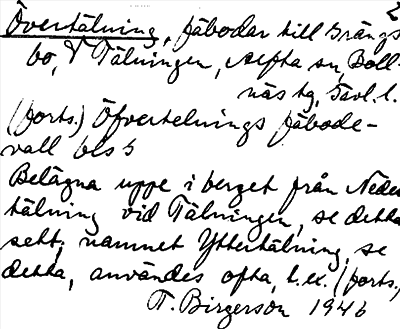 2
Övertälning, fäbodar till Grängs
bo, V Tälningen, Alfta sn, Boll-
näs tg, Gävl. l.
(forts.) Öfvertelnings fäbode-
vall bls 3
Belägna uppe i berget från Neder
tälning vid Tälningen, se detta
sekt; namnet Yttertälning, se
detta, användes ofta, t. ex. (forts.)
T. Birgerson 1946